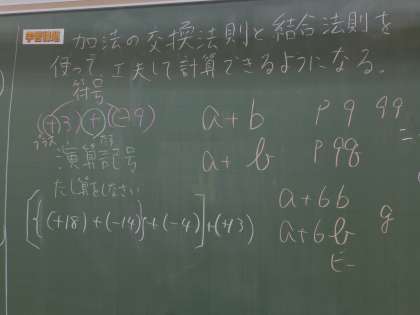 学習目標 加法の交換法則と結合法則を
使って工夫して計算できるようになる。
符号
(+3)+(-9)
プラス たす
演算記号
たし算をしなさい
[{(+18)+(-14)}+(-4)]+(+13)
a+b
a+b
a+6b
a+6b
ビー
p q 99
p99
=
g